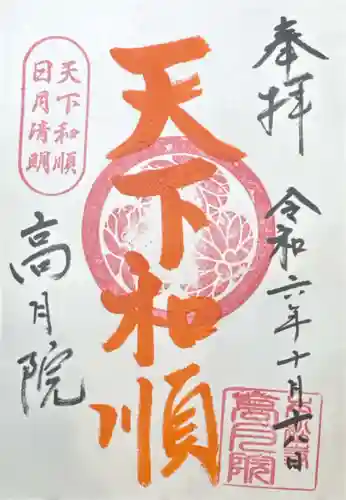 奉拝
令和六年十月六日
天下和順
天下和順
日月清明
高月院